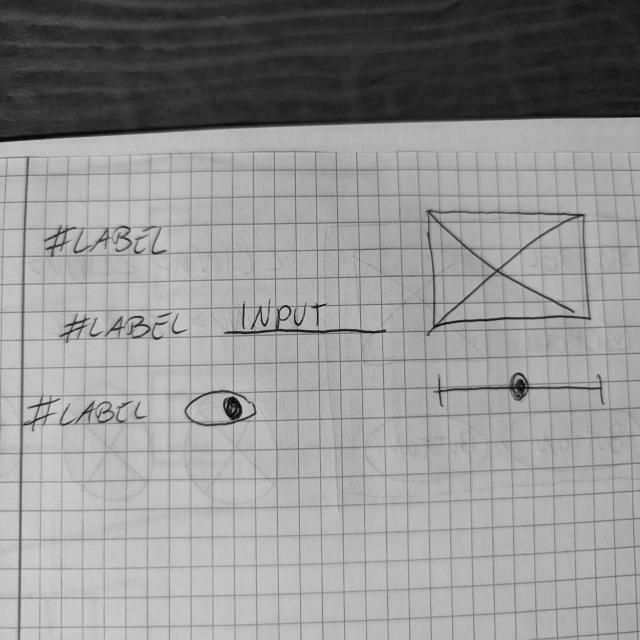 #LABEL
#LABEL INPUT
#LABEL